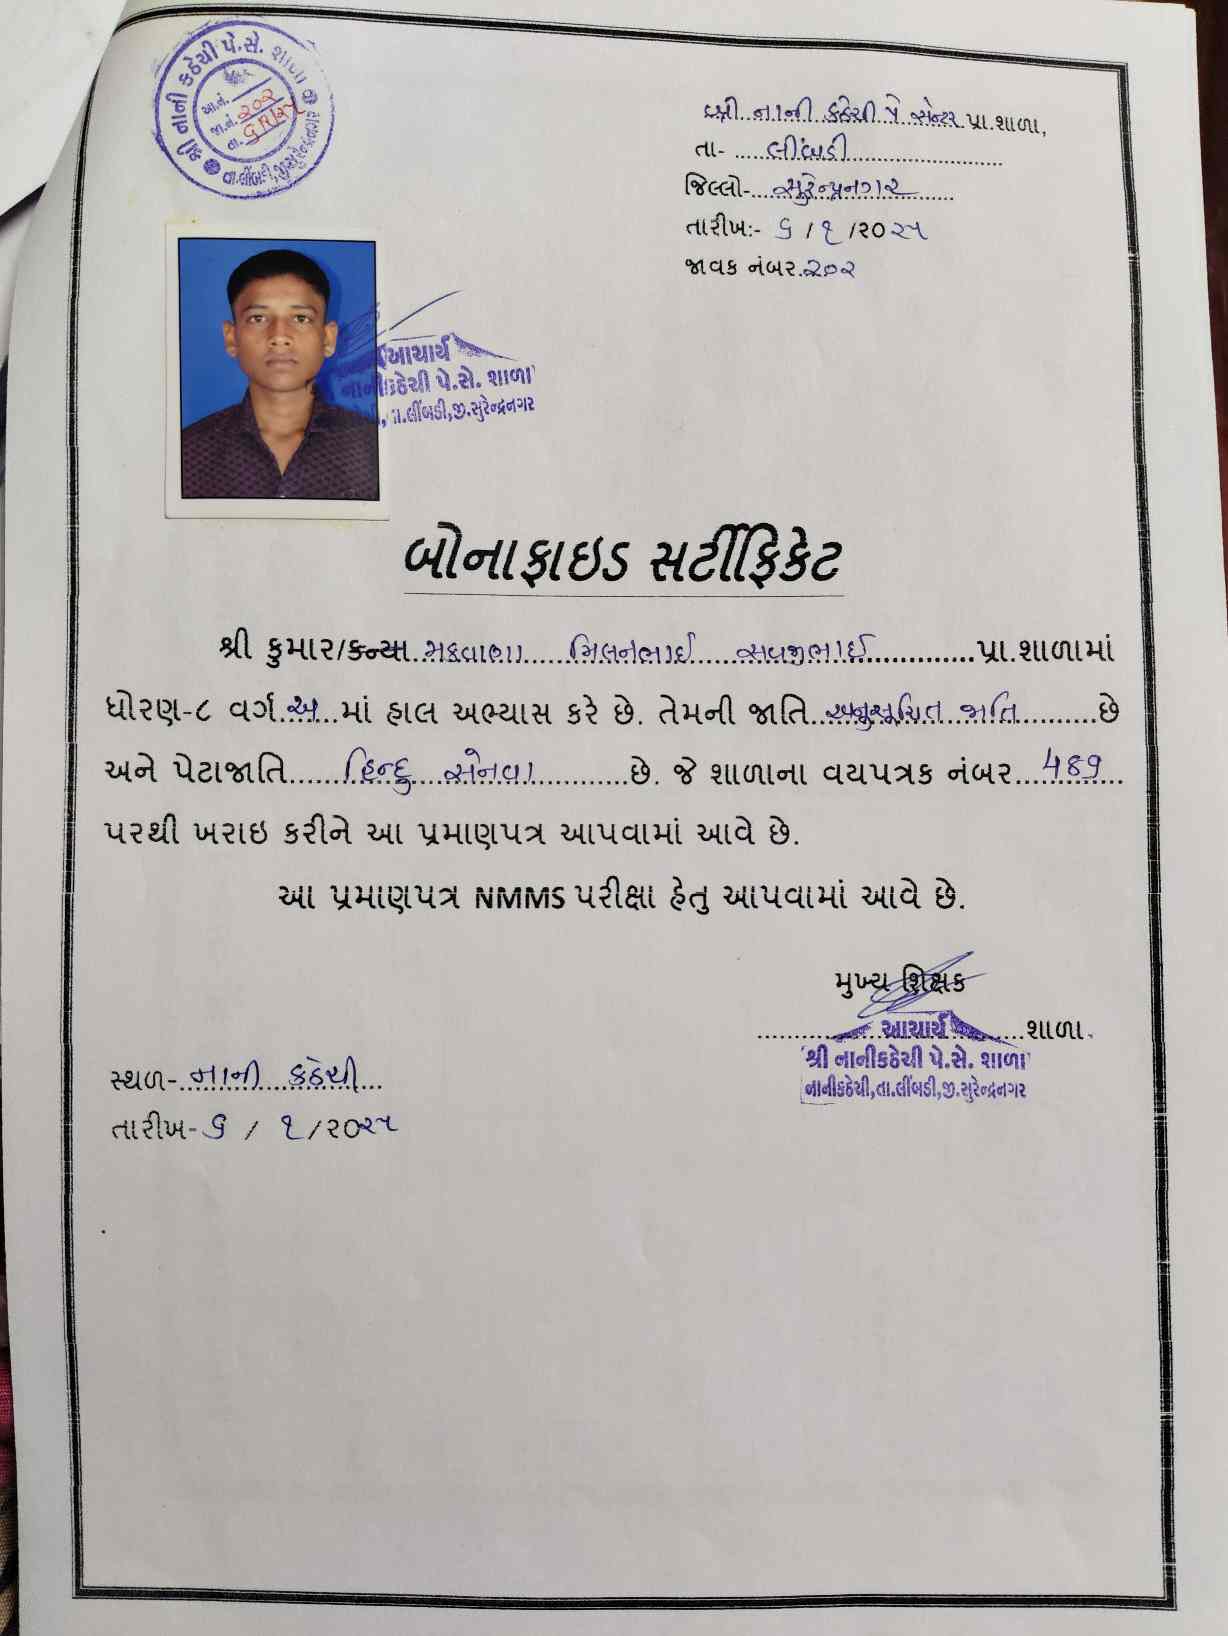 શ્રી નાની કઠેચી પે.સે. શાળા
આ.નં.
જા.નં. ૨૦૨
તા.
તા.લીંબડી,જી.સુરેન્દ્રનગર
શ્રી નાની કઠેચી પે સેન્ટર પ્રા.શાળા,
તા- લીંબડી
જિલ્લો- સુરેન્દ્રનગર
તારીખ:- ૬/૧/૨૦૨૫
જાવક નંબર.૨૦૨
આચાર્ય
નાનીકઠેચી પે.સે. શાળા
તા.લીંબડી,જી.સુરેન્દ્રનગર
બોનાફાઇડ સર્ટીફિકેટ
શ્રી કુમાર/કન્યા મકવાણા મિલનભાઈ સવજીભાઈ પ્રા.શાળામાં
ધોરણ-૮ વર્ગ અ માં હાલ અભ્યાસ કરે છે. તેમની જાતિ અનુસૂચિત જાતિ છે
અને પેટાજાતિ હિન્દુ સેનવા છે. જે શાળાના વયપત્રક નંબર 489
પરથી ખરાઇ કરીને આ પ્રમાણપત્ર આપવામાં આવે છે.
આ પ્રમાણપત્ર NMMS પરીક્ષા હેતુ આપવામાં આવે છે.
મુખ્ય શિક્ષક
આચાર્ય શાળા.
શ્રી નાનીકઠેચી પે.સે. શાળા
નાનીકઠેચી,તા.લીંબડી,જી.સુરેન્દ્રનગર
સ્થળ- નાની કઠેચી
તારીખ- ૬/૧/૨૦૨૫